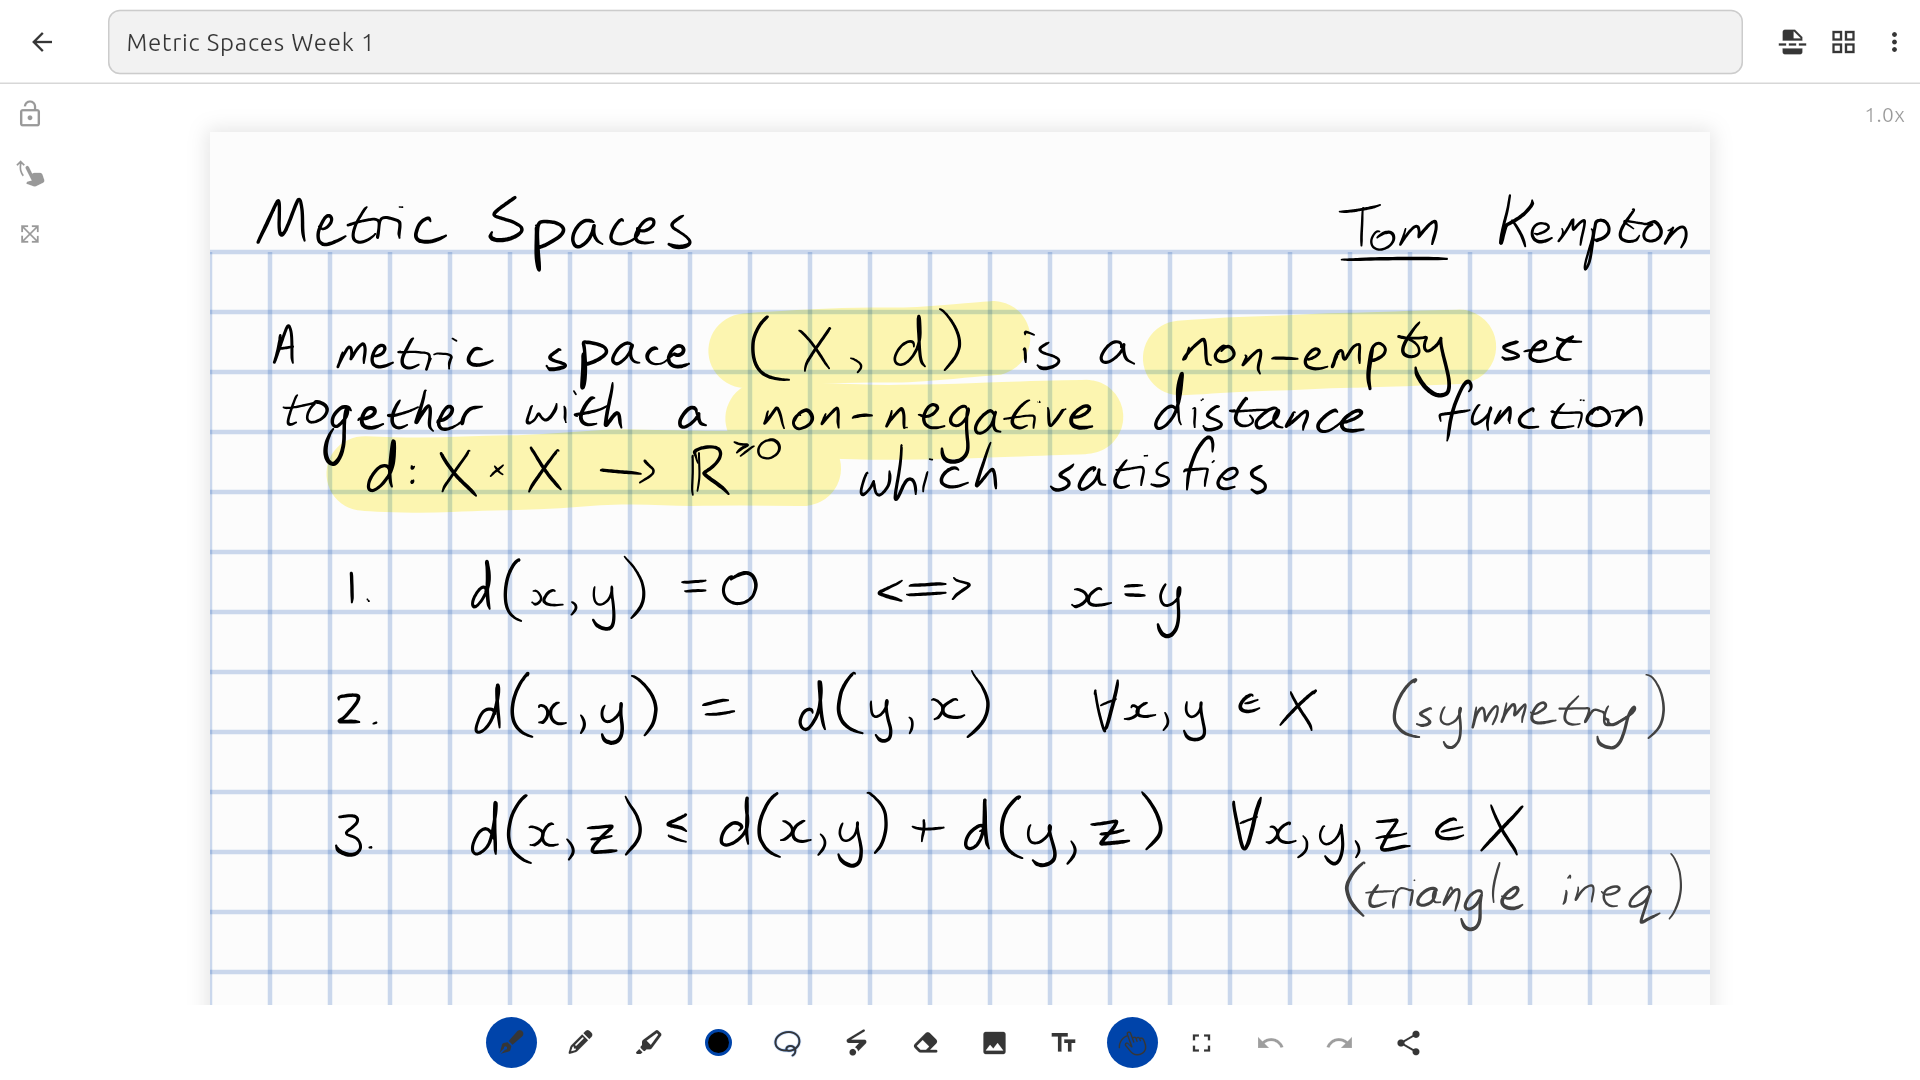 Metric Spaces Week 1
1.0x
Metric Spaces Tom Kempton
A metric space (X, d) is a non-empty set
together with a non-negative distance function
d: X × X → ℝ^≥0 which satisfies
1. d(x,y) = 0 <=> x=y
2. d(x,y) = d(y,x) ∀x,y ∈ X (symmetry)
3. d(x,z) ≤ d(x,y) + d(y,z) ∀x,y,z ∈ X
(triangle ineq)
Tт